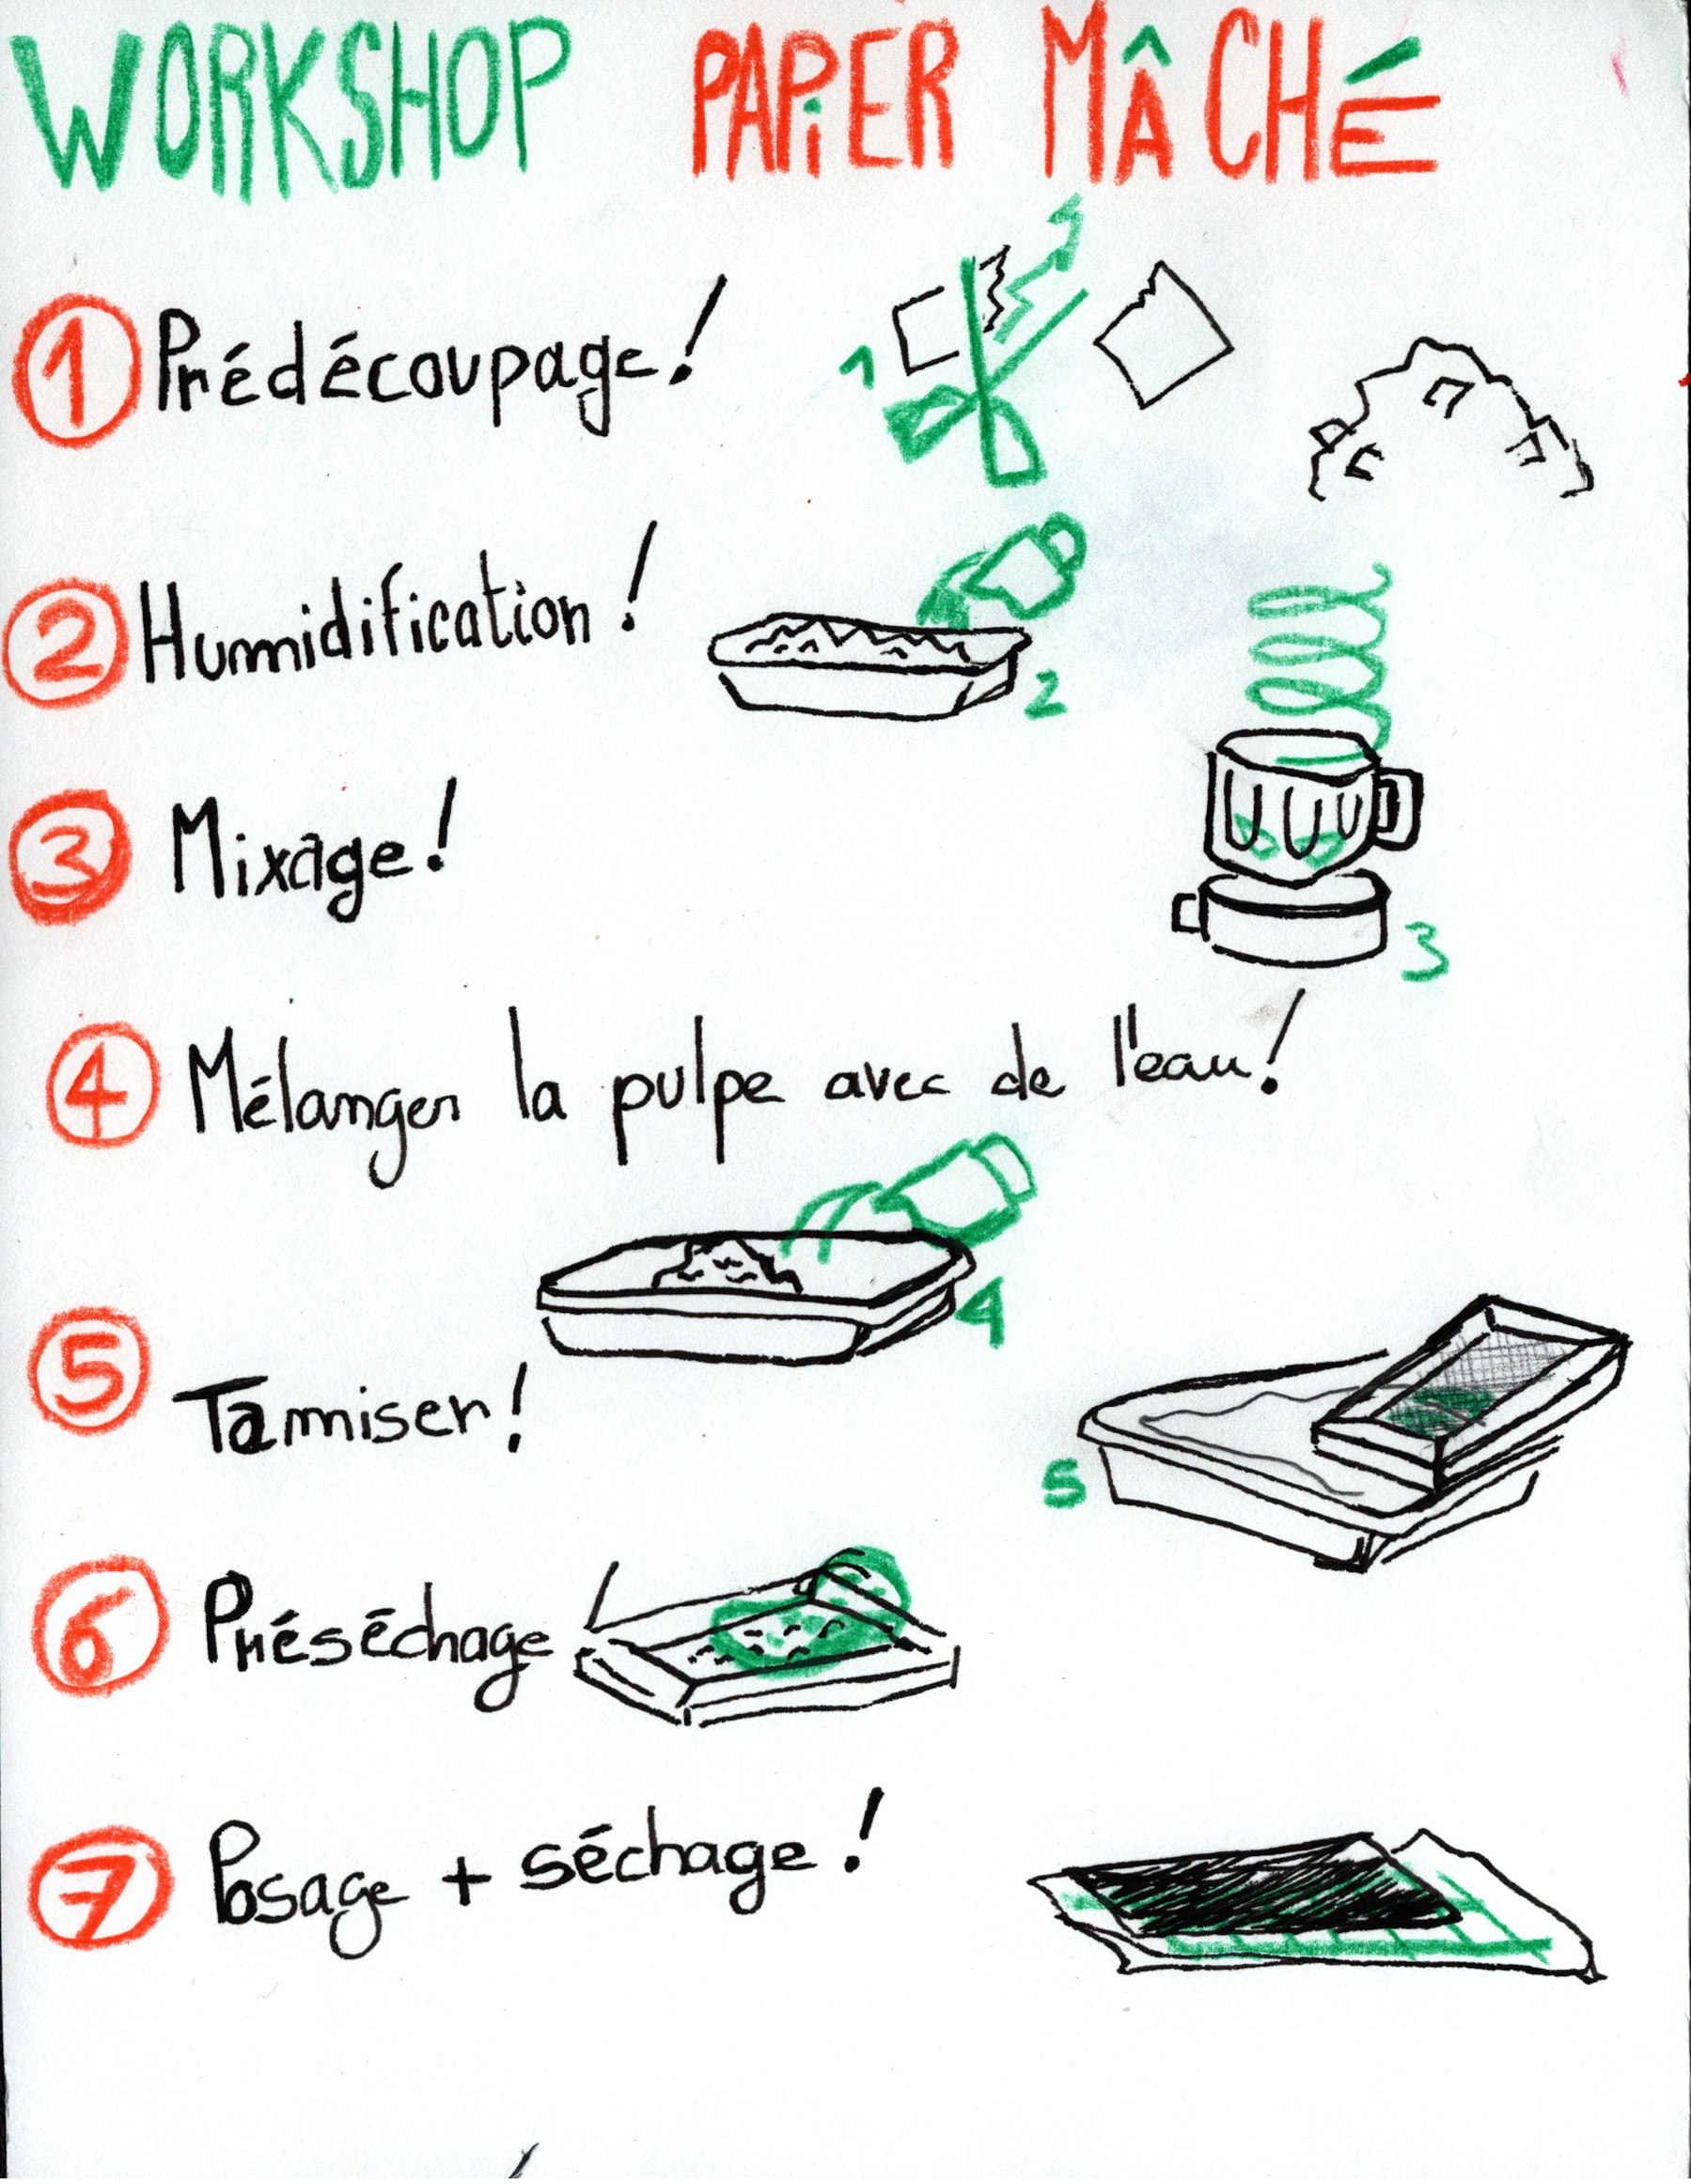 WORKSHOP PAPiER MÂCHÉ
1 Prédécoupage!
1
2 Humidification!
2
3 Mixage!
3
4 Mélanger la pulpe avec de l'eau!
4
5 Tamiser!
5
6 Préséchage
7 Posage + séchage!